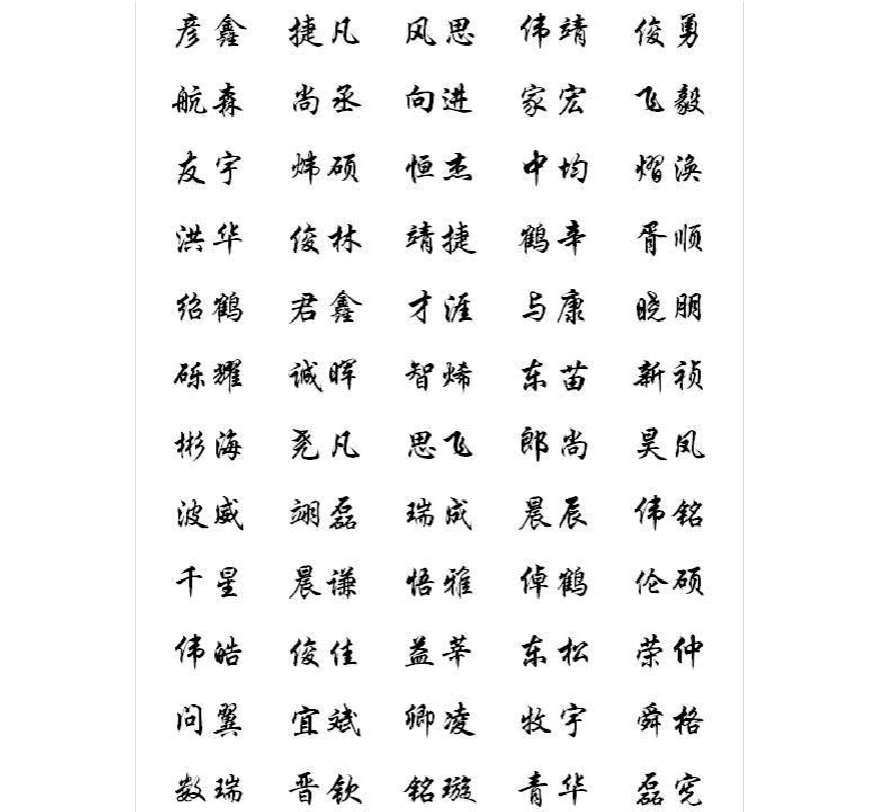 彦鑫 捷凡 风思 伟靖 俊勇
航森 尚丞 向进 家宏 飞毅
友宇 炜硕 恒杰 中均 熠涣
洪华 俊林 靖捷 鹤辛 胥顺
绍鹤 君鑫 才涯 与康 晓朋
砾耀 诚晖 智烯 东苗 新祯
彬海 尧凡 思飞 郎尚 昊凤
波威 翊磊 瑞成 晨辰 伟铭
千星 晨谦 悟雅 倬鹤 伦硕
伟皓 俊佳 益莘 东松 荣仲
问翼 宜斌 卿凌 牧宇 舜格
数瑞 晋钦 铭璇 青华 磊完